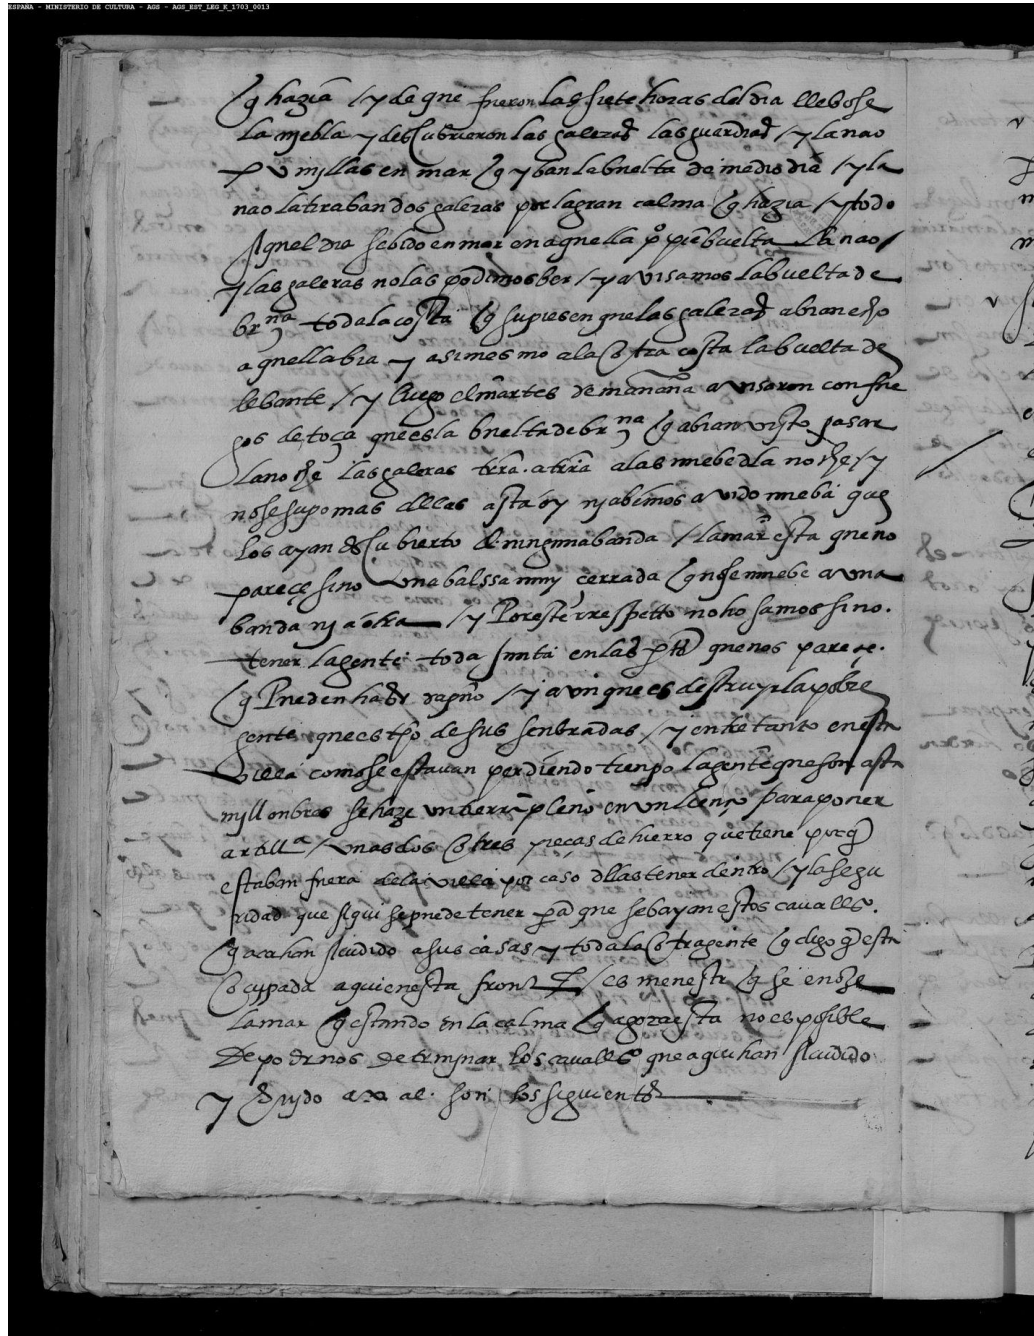 ESPAÑA - MINISTERIO DE CULTURA - AGS - AGS_EST_LEG_K_1703_0013
q hazia / y de que fueron las siete horas del dia llebose
la niebla y descubrieron las galeras las guardias / y la nao
x v millas en mar q yban la buelta de medio dia / y la
nao la tiraban dos galeras por la gran calma q hazia / todo
aquel dia sebido en mar en aquella buelta la nao /
y las galeras no las podimos ber / y avisamos la buelta de
br.na toda la costa q supiesen que las galeras abian echo
aquella bia y asimesmo a la otra costa la buelta de
lebante / y luego el martes de mañana avisaron con fue
gos de que es la buelta de br.na q abian visto pasar
la noche las galeras trra a trra a las nuebe dla noche / y
no se supo mas dellas asta oy ni abemos avido nueba que
los ayan descubierto de ninguna banda / la mar esta que no
pareçe sino una balssa muy çerrada q no se muebe a una
banda ni a otra / y Por este rrespetto no hosamos sino
tener la gente toda junta en las ptes que nos pareçe
q Pueden hazer dapño / y aun que es destruyr la pobre
gente que es tpo de sus senbradas / y entre tanto en esta
villa como se estavan perdiendo tienpo la gente que son asta
mill onbres se haze un terrapleno en un lienço para poner
artill.a / unas dos o tres pieças de hierro que tiene porq
estaban fuera de la villa por caso dllas tener dentro / y la segu
ridad que aqui se puede tener pa que se bayan estos cavallos
q aca han acudido a sus casas y toda la otra gente q digo q esta
ocupada aqui en esta front.ra / es menester q se enoje
la mar q estando en la calma q agora esta no es posible
de podernos determinar los cavallos que aqui han acudido
y benido son los siguientes